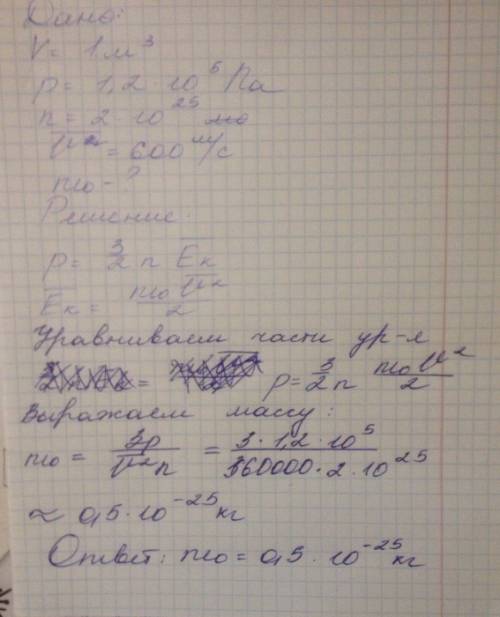 Дано:
V = 1 м³
p = 1,2 · 10⁵ Па
n = 2 · 10²⁵
v̅² = 600 м/с
m₀ - ?
Решение:
p = 3/2 n E̅к
E̅к = m₀v̅²/2
Уравниваем части ур-я
= p = 3/2 n m₀v̅²/2
Выражаем массу:
m₀ = 3p/v̅²n = 3 · 1,2 · 10⁵/360000 · 2 · 10²⁵
≈ 0,5 · 10⁻²⁵ кг
Ответ: m₀ = 0,5 · 10⁻²⁵ кг